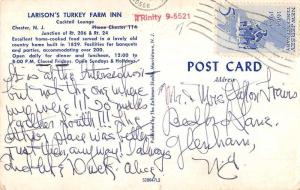 LARISON'S TURKEY FARM INN
Cocktail Lounge
TRinity 9-5521
Chester, N. J. Phone Chester 114
Junction of Rt. 206 & Rt. 24
Excellent home-cooked food served in a lovely old
country home built in 1859. Facilities for banquets
and parties, accommodating over 200.
Open daily for dinner and luncheon, 12:00 to
9:00 P.M. Closed Fridays. Open Sundays & Holidays.
POST CARD
Address
It is at the intersection
but not the one where
we were!!! 20 miles
South!!! The
other place was better
just then, anyway! Always
Duck, Alice
Mr. & Mrs.
Lane,
Glenham,
NY